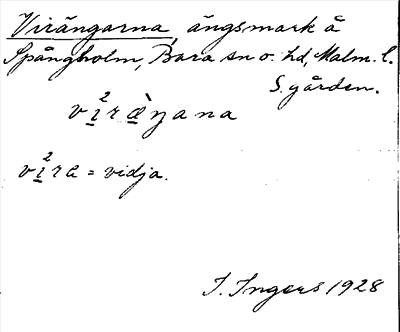 Virängarna, ängsmark å
Spångholm, Bara sn o. hd, Malm. l.
S. gården.
vi²ræ̀ŋana
vi²ra = vidja.
I. Ingers 1928